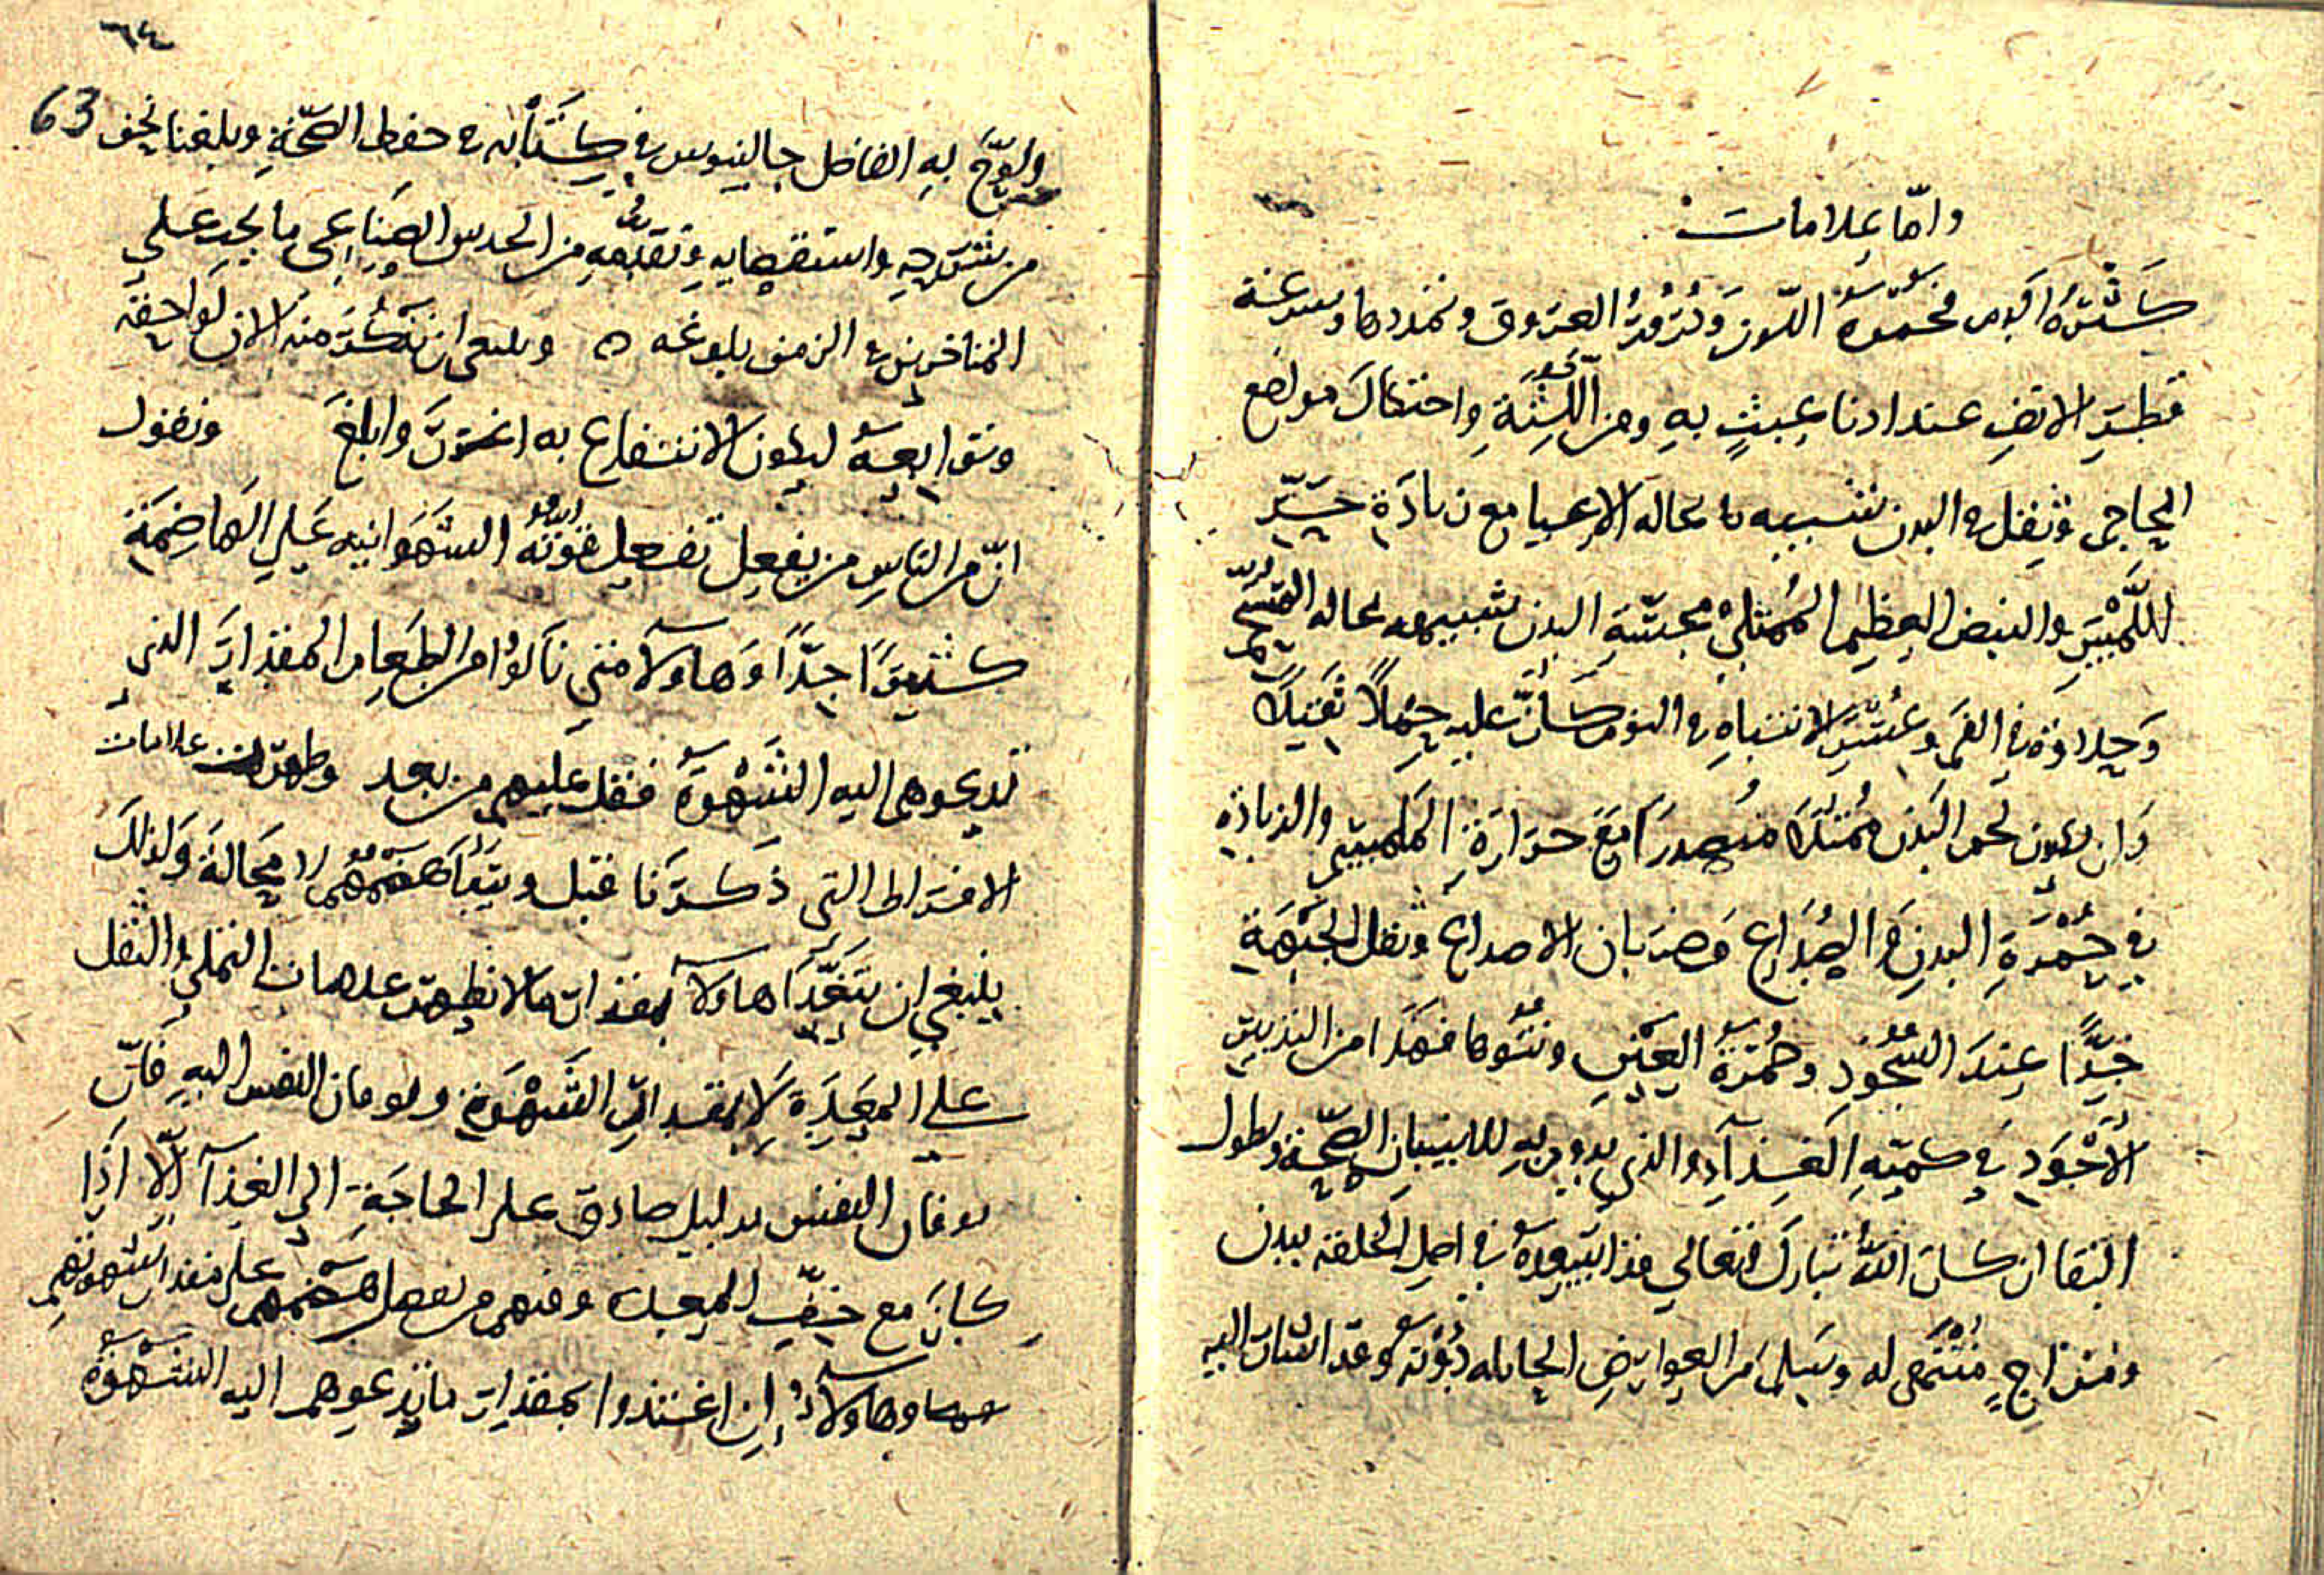 واما علامات
كثرة الدم فحمرة اللون ودرور العروق وتمددها وسرعة
قطر الانف عند ادنا عبث به ومن اللثة واحتكاك مواضع
المحاجم وثقل في البدن شبيه بحالة الاعيا مع زيادة حر
الملمس والنبض العظيم الممتلي مجسة البدن شبيهه بحاله
وحلاوة في الفم وعسر الانتباه من النوم كأن عليه حملا ثقيلا
وان يكون لحم البدن ممتلئا مع حرارة الملمس والزيادة
في حمرة البدن والصداع وضربان الاصداغ وثقل الجبهة
جدا عند السجود وحمرة العين ونتوها فهذا من التدبير
الاجود في كمية الغذاء والذي يدوم به للانسان الصحة وطول
البقا ان كان الله تبارك وتعالى قد ابتدعه في اصل الخلقه ببدن
ومزاج متمم له وسلم من العوارض الحايله دونه وعد اسبابا اليه
٦٤
63
به الفاضل جالينوس في كتابه في حفظ الصحة وبلغنا نحن
من شرحه واستقصايه وتقدمه من الحدس الصناعي ما يجب علي
المتاخرين في الزمن بلوغه ه وينبغي ان نذكر منه الان لواحقه
وتوابعه ليكون الانتفاع به اغزر وابلغ ونقول
ان من الناس من يفضل تفضيل قوته الشهوانيه علي الهاضمة
كثيرا جدا وهاولا متي نالوا من الطعام المقدار الذي
تدعوهم اليه الشهوة ثقل عليهم من بعد وظهرت علامات
الافراط التي ذكرنا قبل هضمهم لا محالة ولذلك
ينبغي ان يتغذا هاولا بمقدار ما لا يظهر علامات التملي والثقل
علي المعدة لا بمقدار الشهوة وتوقان النفس اليه فان
توقان النفس بدليل صادق علي الحاجة الي الغذآ الا اذا
كان مع خف المعدة ومنهم من يفضل هضمهم علي مقدار شهوتهم
وهاولاء ان اغتذوا بمقدار ما تدعوهم اليه الشهوة